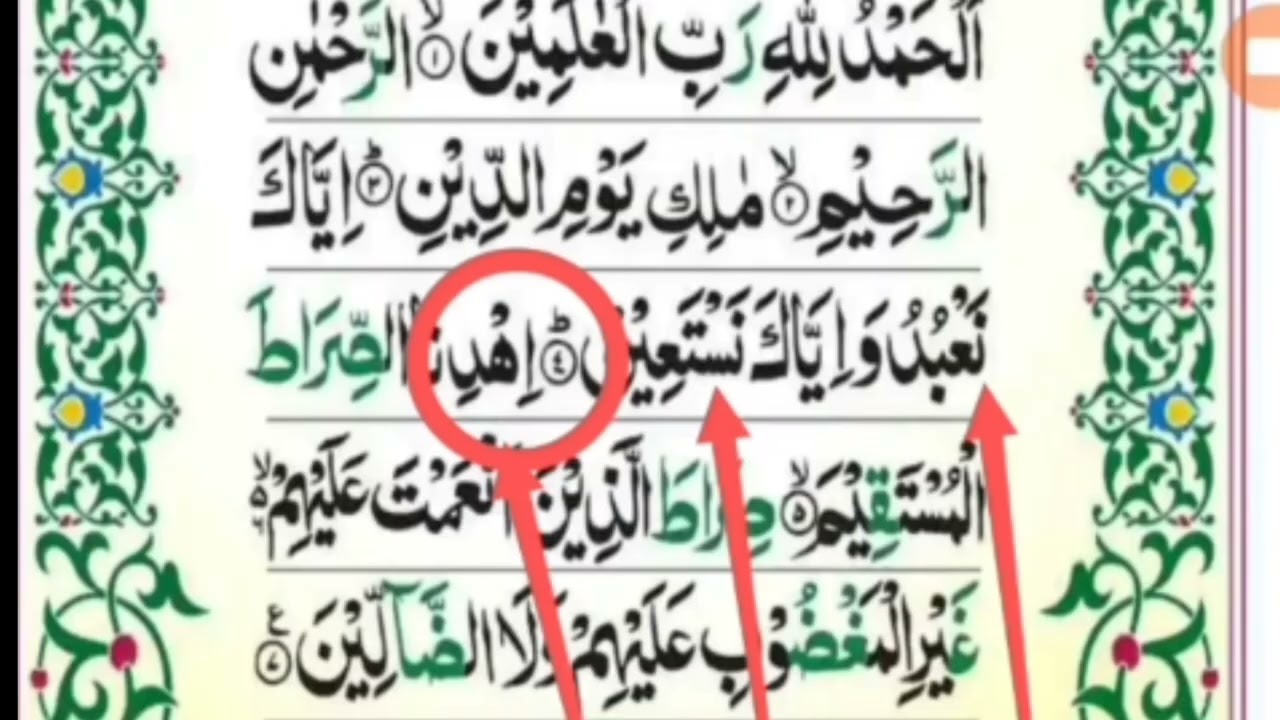 اَلْحَمْدُ لِلّٰهِ رَبِّ الْعٰلَمِيْنَ ۙ﴿۱﴾ الرَّحْمٰنِ
الرَّحِيْمِ ۙ﴿۲﴾ مٰلِكِ يَوْمِ الدِّيْنِ ؕ﴿۳﴾ اِيَّاكَ
نَعْبُدُ وَ اِيَّاكَ نَسْتَعِيْنُ ؕ﴿۴﴾ اِهْدِنَا الصِّرَاطَ
الْمُسْتَقِيْمَ ۙ﴿۵﴾ صِرَاطَ الَّذِيْنَ اَنْعَمْتَ عَلَيْهِمْ ۙ۬ۦ
غَيْرِ الْمَغْضُوْبِ عَلَيْهِمْ وَلَا الضَّآلِّيْنَ ﴿۷﴾ ع